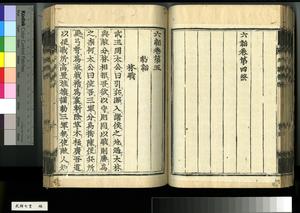 六韜卷第四終
六韜卷第五
豹韜
林戰
武王問太公曰引兵深入諸侯之地遇大林
與敵分林相拒吾欲以守則固以戰則勝爲
之奈何太公曰使吾三軍分爲衝陳便兵所
處弓弩爲表戟楯爲裏斬除草木極廣吾道
以便戰所高置旌旗謹勑三軍無使敵人知